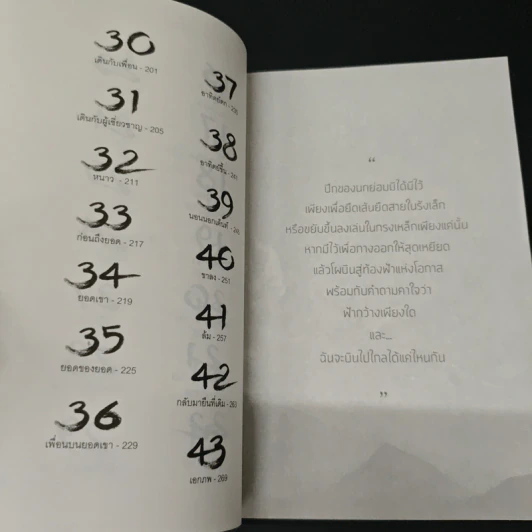 30
เดินกับเพื่อน - 201
31
เดินกับผู้เชี่ยวชาญ - 205
32
หนาว - 211
33
ก่อนถึงยอด - 217
34
ยอดเขา - 219
35
ยอดของยอด - 225
36
เพื่อนบนยอดเขา - 229
37
อาทิตย์ตก -
38
อาทิตย์ขึ้น -
39
นอนนอกเต็นท์ -
40
ขาลง - 251
41
ล้ม - 257
42
กลับมายืนที่เดิม - 263
43
เอกภพ - 269
“
ปีกของนกย่อมมิได้มีไว้
เพียงเพื่อยืดเส้นยืดสายในรังเล็ก
หรือขยับขึ้นลงเล่นในกรงเหล็กเพียงแค่นั้น
หากมีไว้เพื่อกางออกให้สุดเหยียด
แล้วโผบินสู่ท้องฟ้าแห่งโอกาส
พร้อมกับคำถามคาใจว่า
ฟ้ากว้างเพียงใด
และ...
ฉันจะบินไปไกลได้แค่ไหนกัน
”